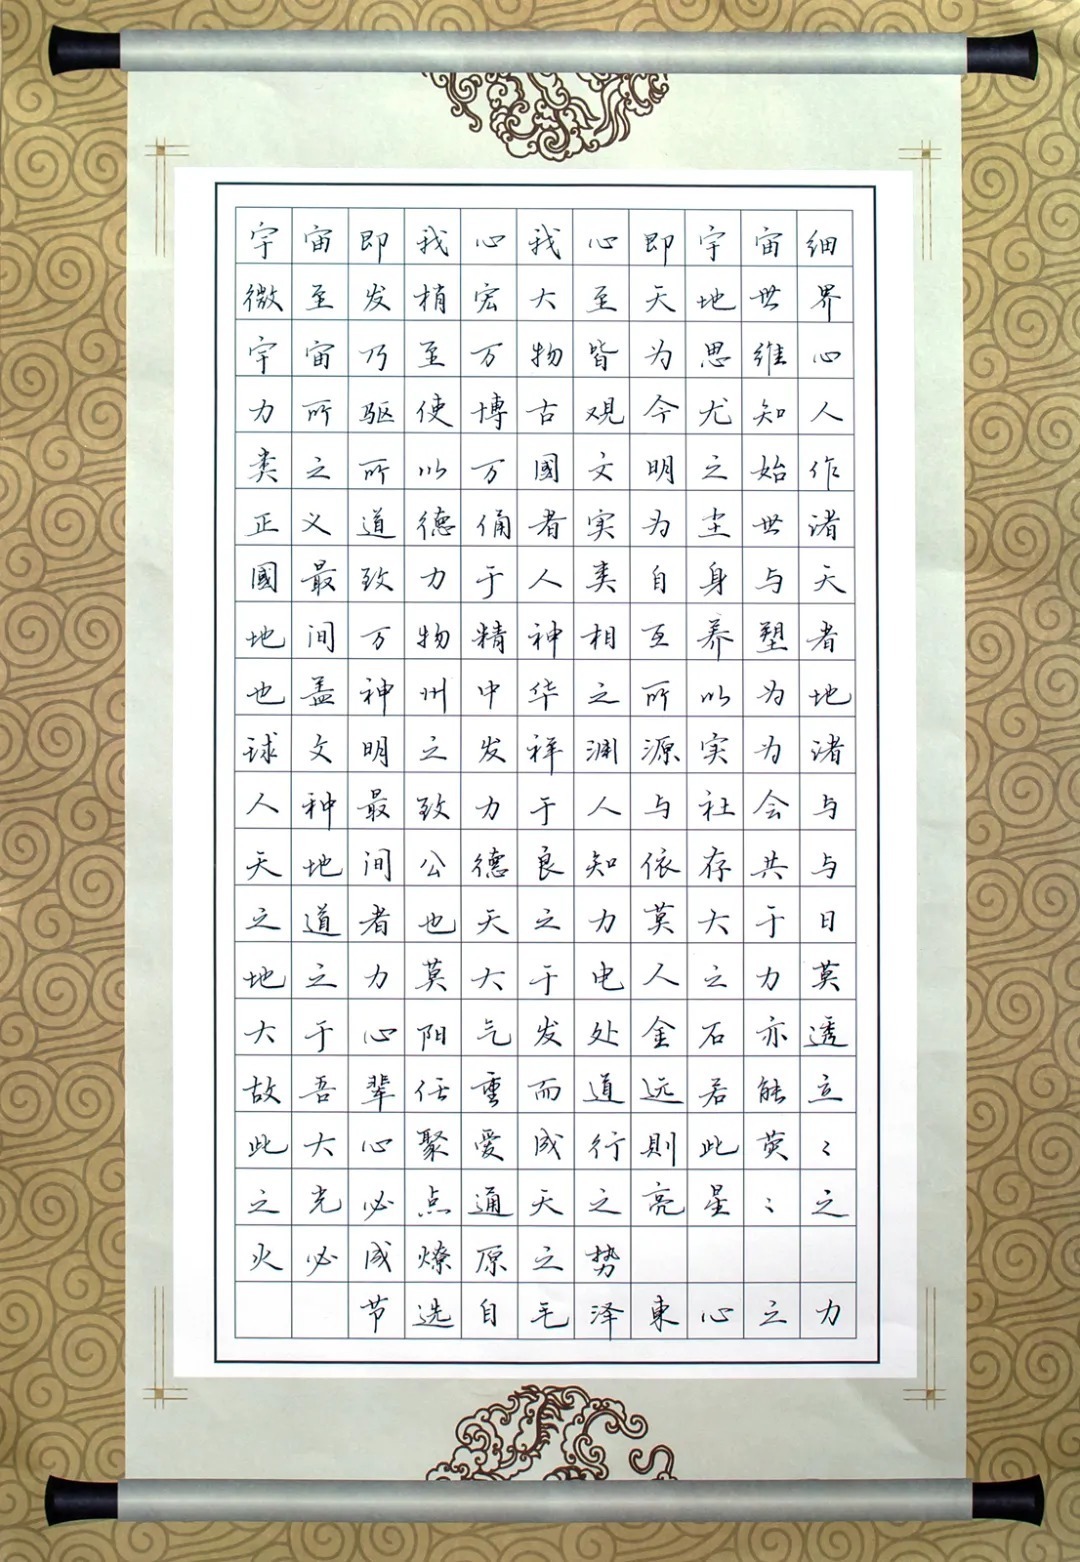 宇宙即我心我心即宇宙细
微至发梢宏大至天地世界
宇宙乃至万物皆为思维心
力所驱使博古观今尤知人
类之所以万國文明之始作
正义道德俑者实为尘世诸
國最致力于人类自身与天
地间万物精神相互养塑者
也盖神州中华之所以为地
球文明之发祥渊源实为诸
人种最致力于人与社会与
天地间公德良知依存共与
之道者也天之力莫大于日
地之力莫大于电人之力莫
大于心阳气发处金石亦透
故吾辈任重而道远若能立
此大心聚爱成行則此荧〻
之光必点通天之亮星〻之
火必成燎原之势
节选自毛泽東心之力